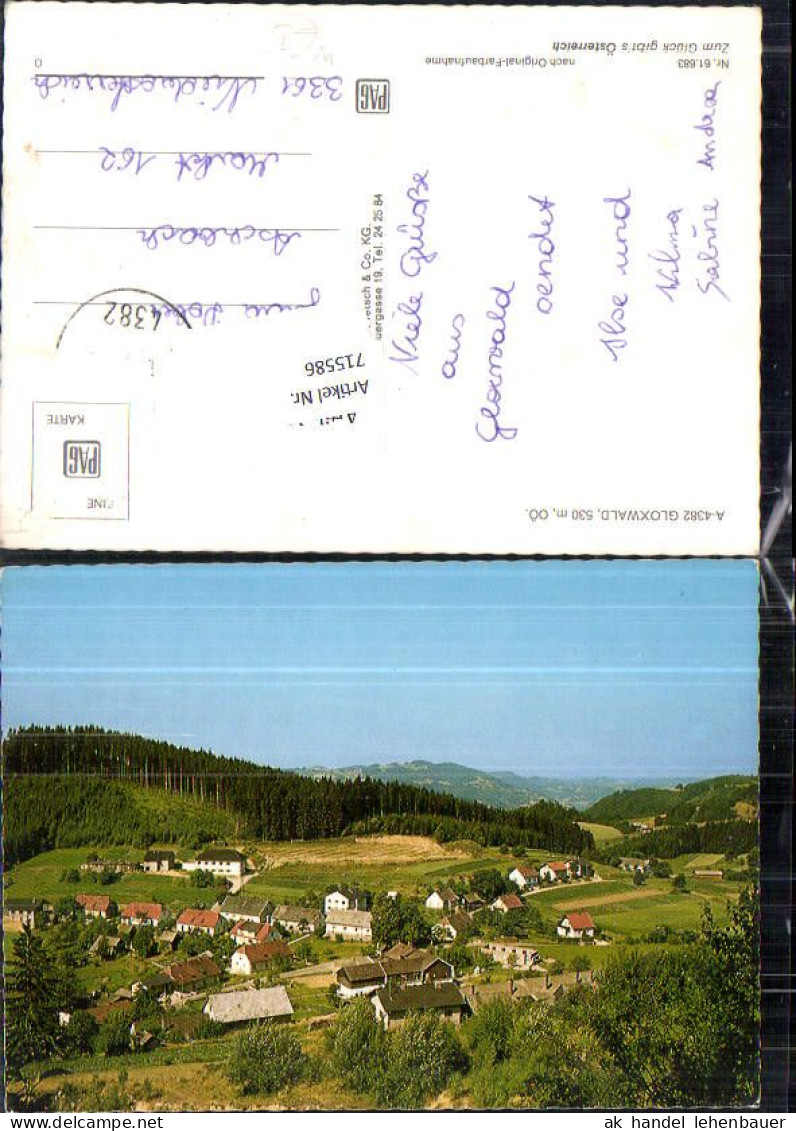 A-4382 GLOXWALD, 530 m, OÖ.
EINE
PAG
KARTE
Viele Grüße
aus
Gloxwald
sendet
Ilse und
Wilma
Sabine Andrea
Artikel Nr.
715586
etsch & Co. KG.
uergasse 19, Tel. 24 25 84
4382
Aschbach
Markt 162
3361 Niederösterreich
PAG
Nr. 61.683
nach Original-Farbaufnahme
Zum Glück gibt's Österreich
ak handel lehenbauer